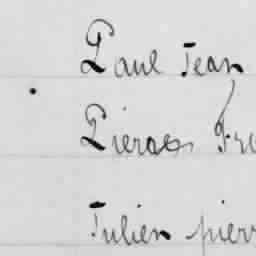 Paul Jean
Pierres Fr
Julien pierr